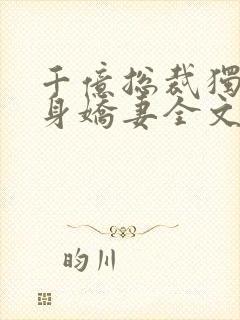 千億總裁獨
身嬌妻全文
昀川